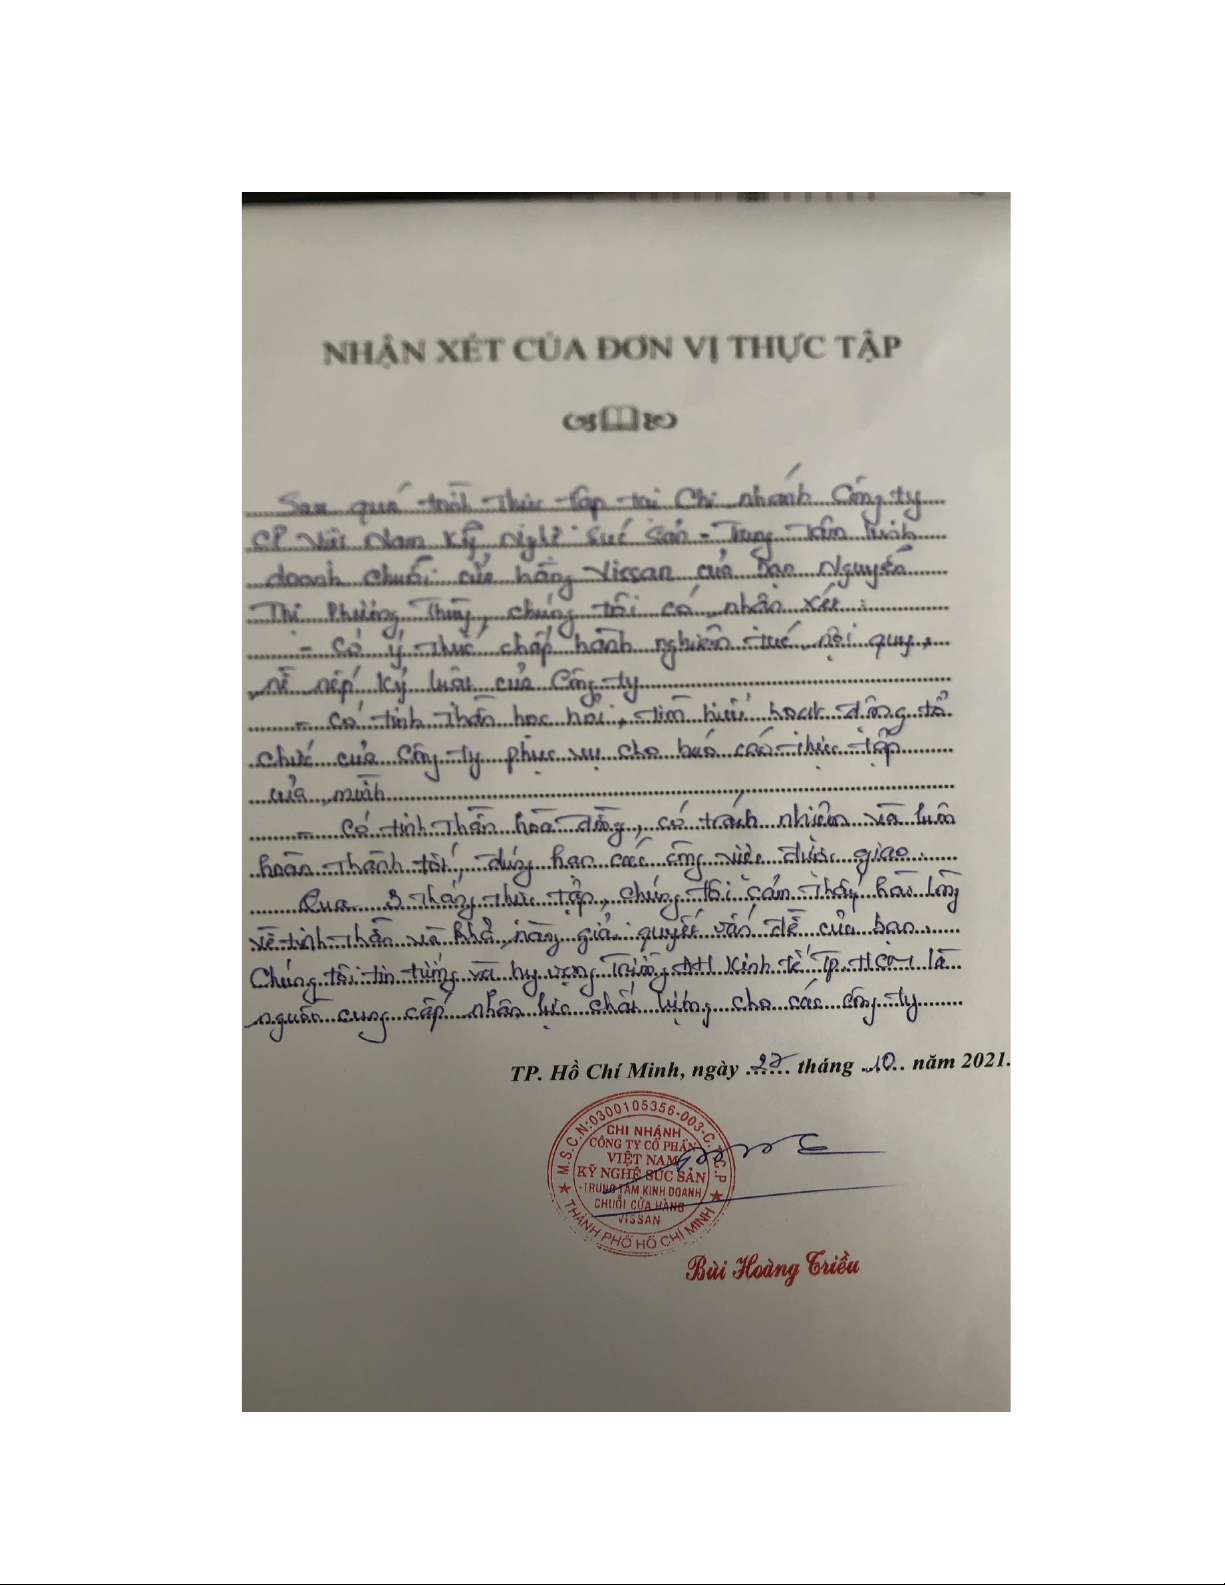 NHẬN XÉT CỦA ĐƠN VỊ THỰC TẬP
Sau quá trình thực tập tại Chi nhánh Công ty
CP Việt Nam Kỹ Nghệ Súc Sản - Trung tâm kinh
doanh chuỗi cửa hàng Vissan của bạn Nguyễn
Thị Phương Thùy, chúng tôi có nhận xét :
- Có ý thức chấp hành nghiêm túc nội quy,
nề nếp kỷ luật của Công ty
- Có tinh thần học hỏi, tìm hiểu hoạt động tổ
chức của Công ty phục vụ cho báo cáo thực tập
của mình
- Có tinh thần hòa đồng, có trách nhiệm và luôn
hoàn thành tốt, đúng hạn các công việc được giao.
Qua 3 tháng thực tập, chúng tôi cảm thấy hài lòng
về tinh thần và khả năng giải quyết vấn đề của bạn.
Chúng tôi tin tưởng và hy vọng Trường ĐH Kinh tế Tp.HCM là
nguồn cung cấp nhân lực chất lượng cho các công ty
TP. Hồ Chí Minh, ngày 27 tháng 10 năm 2021.
M.S.C.N:0300105356-003-C.T.C.P
CHI NHÁNH
CÔNG TY CỔ PHẦN
VIỆT NAM
KỸ NGHỆ SÚC SẢN
-TRUNG TÂM KINH DOANH
CHUỖI CỬA HÀNG
VISSAN
THÀNH PHỐ HỒ CHÍ MINH
Bùi Hoàng Triều